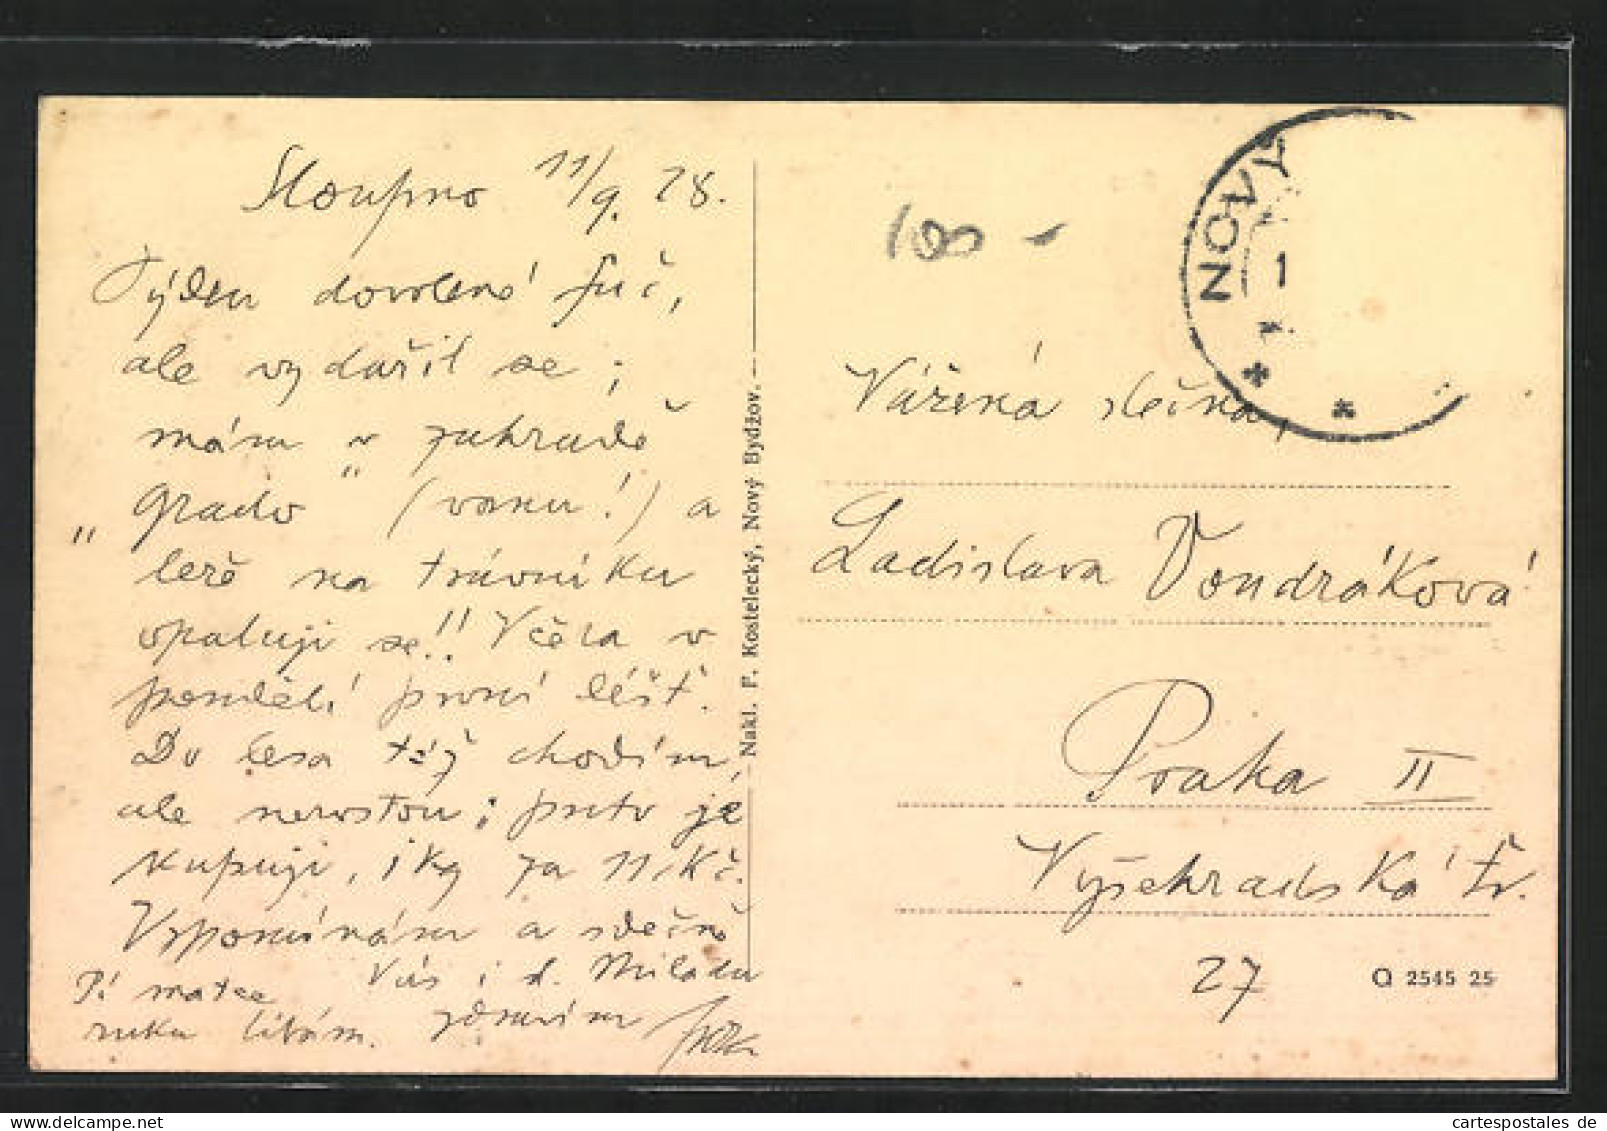 Sloupno 11/9. 28.
Týden dovolené fuč,
ale vydařil se;
mám v zahradě
„grado" (vanu!) a
leže na trávníku
opaluji se!! Včera v
pondělí první déšť.
Do lesa též chodím,
ale nerostou; proto je
kupuji, 1 kg za 11 Kč.
Vzpomínám a srdečně
Vás i sl. Miladu
zdravím
Pí matce
ruku líbám.
Nakl. F. Kostelecký, Nový Bydžov.
108 -
NOVÝ
1
Vážená slečna,
Ladislava Vondráková
Praha II
Vyšehradská tř.
27
Q 2545 25
cartespostales de